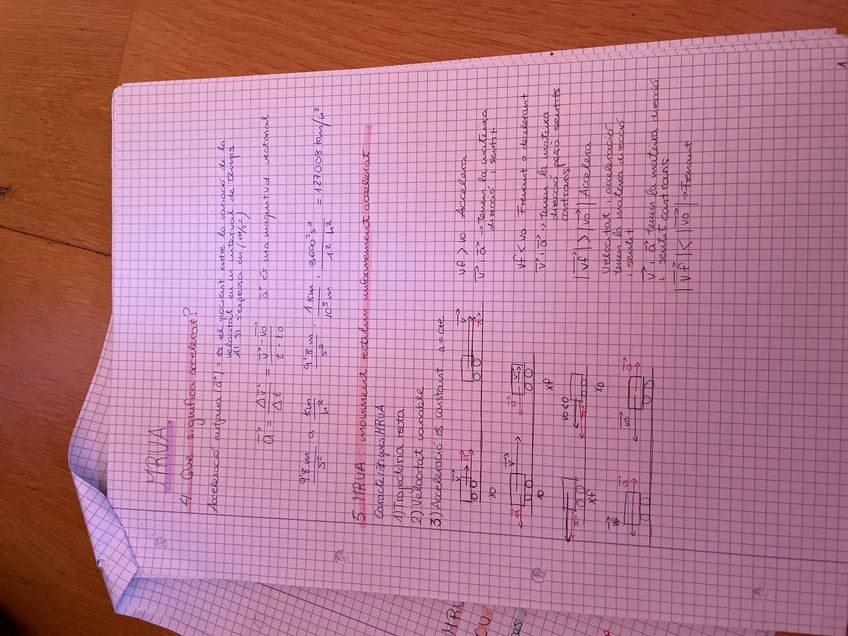 MRVA
4. Què significa accelerar?
Acceleració mitjana (a→) = és el quocient entre la variació de la
velocitat en un interval de temps
Al SI s'expressa en (m/s²)
a→ = Δv→ / Δt = v→ - v0→ / t - t0   a→ és una magnitud vectorial
9'8 m/s² a km/h²   9'8 m/s² · 1 km/10³ m · 3600² s²/1² h² = 127008 km/h²
5. MRUA: moviment rectilini uniformement accelerat
Característiques MRUA
1) Trajectòria recta
2) Velocitat variable
3) Acceleració és constant a = cte
v→ a→ v→ a→
x0
vf > v0 Accelera
v→ i a→ → tenen la mateixa
direcció i sentit
a→ v→ a→ v→
x0 xf
vf < v0 Frenant o decelerant
v→ i a→ → tenen la mateixa
direcció però sentits
contraris
a→ v<0 a→
xf x0
|vf→| > |v0→| Accelera
Velocitat i acceleració
tenen la mateixa direcció
i sentit
v→ a→ v→ a→
v→ i a→ tenen la mateixa direcció
i sentit contraris
|vf→| < |v0→| → Frenant
1
MRU